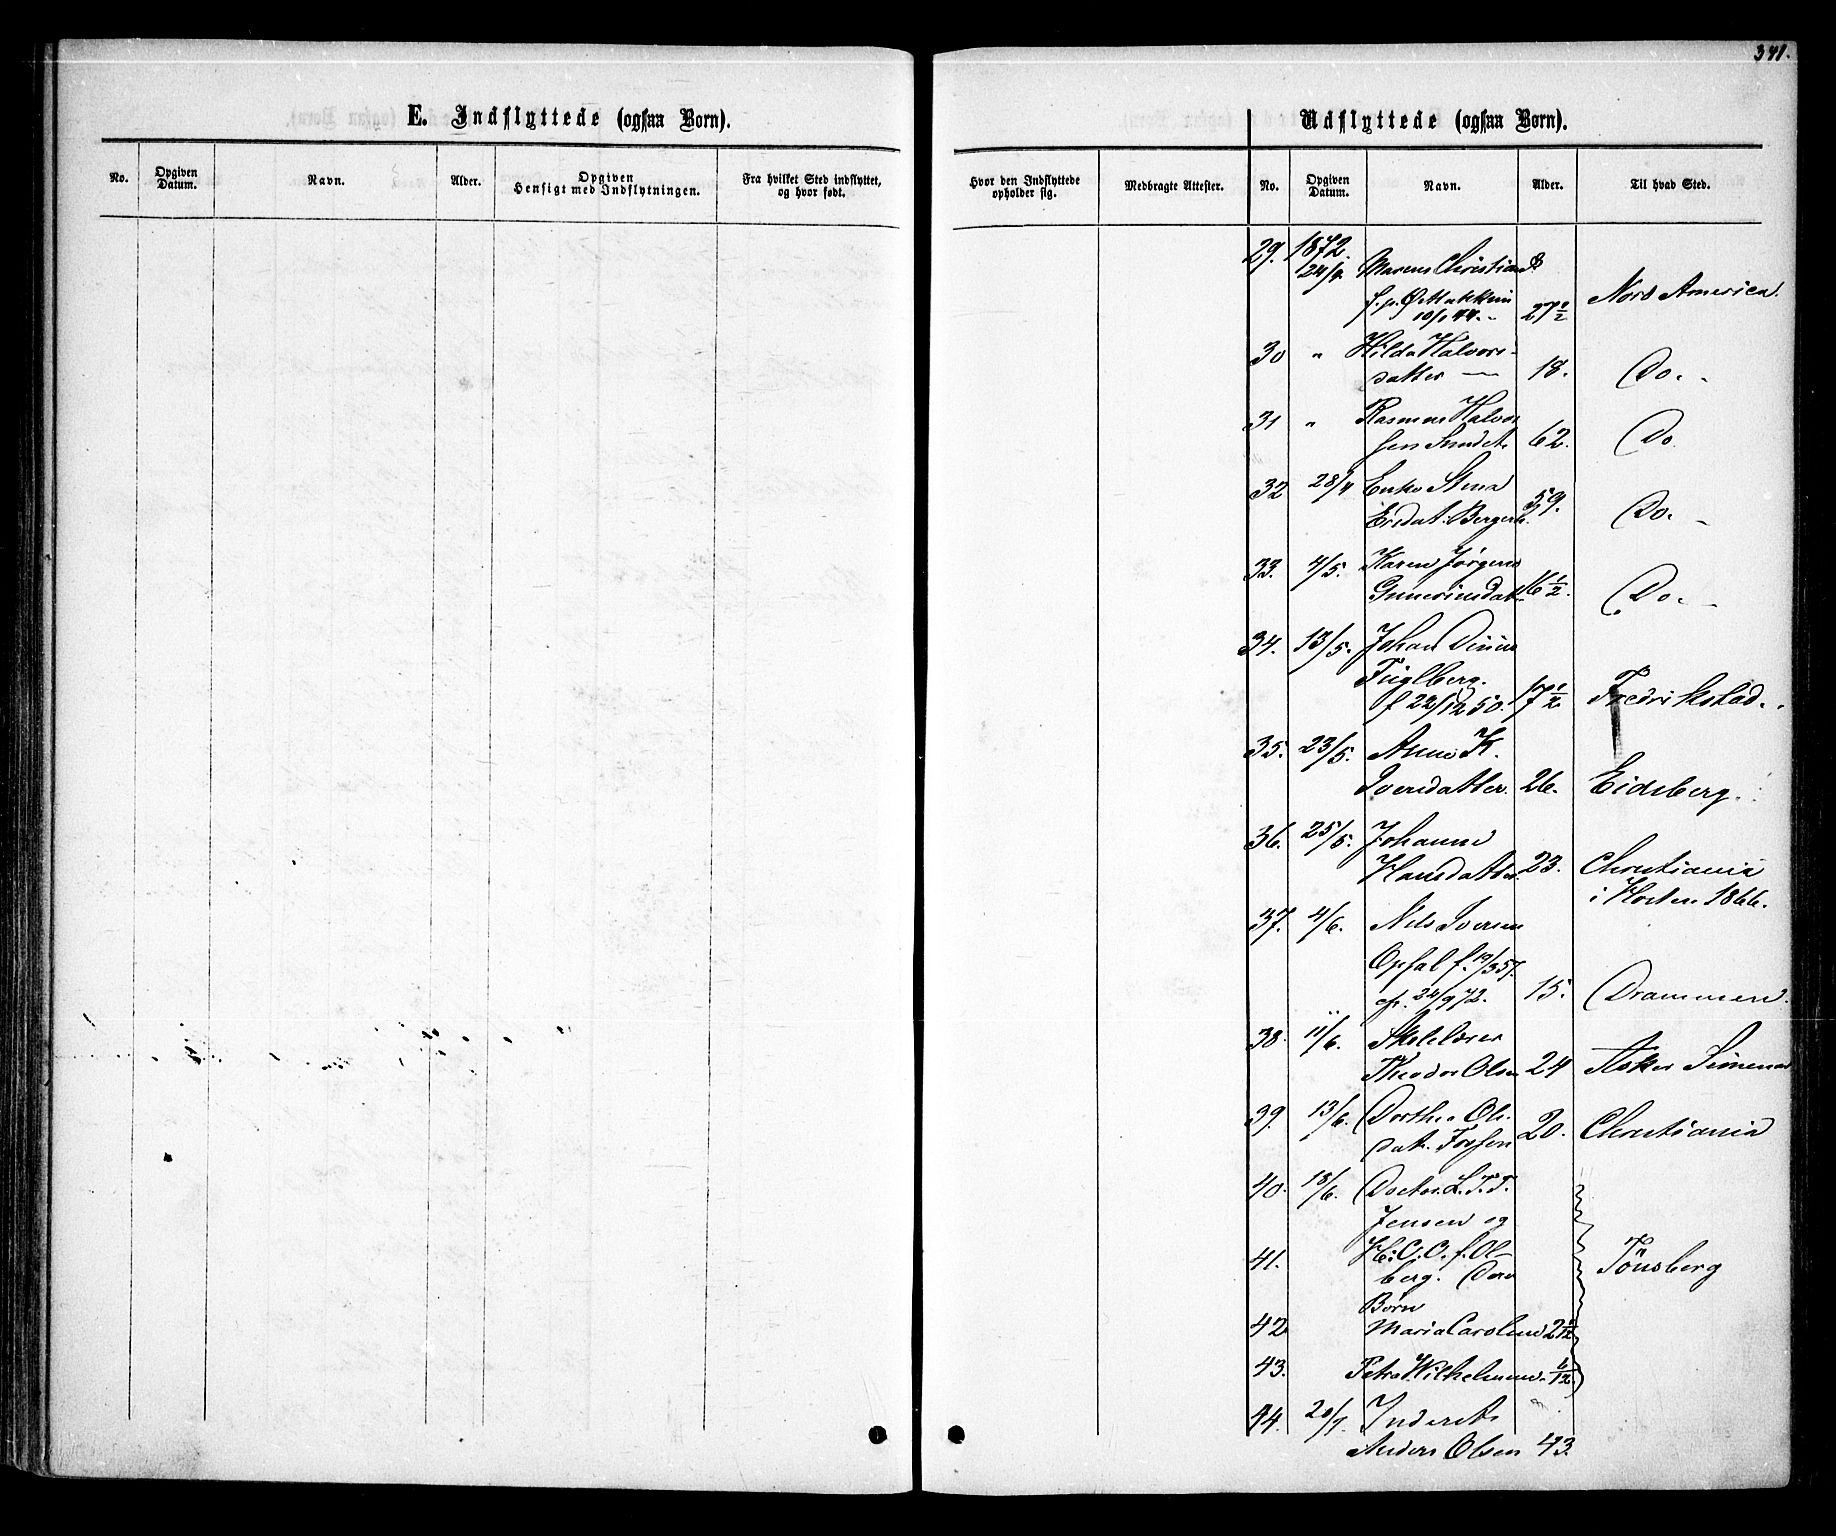 341.
E. Indflyttede (ogsaa Børn).
No.
Opgiven Datum.
Navn.
Alder.
Opgiven Hensigt med Indflytningen.
Fra hvilket Sted indflyttet, og hvor født.
Hvor den Indflyttede opholder sig.
Medbragte Attester.
Udflyttede (ogsaa Børn).
No.
Opgiven Datum.
Navn.
Alder.
Til hvad Sted.
29. 1872.
24/4 Maren Christians
10/1 44. 27 1/2 Nord America.
30 " Hilda Halvors-
datter 18. Do. -
31 " Rasmus Halvor
sen 62. Do
32 28/4 Stina
Ersdat. 59. Do. -
33. 4/5. Karen Jørgens
16 1/2. Do. -
34. 13/5. Johan
Fuglberg.
f 22/12 50. 17 1/2 Fredrikstad.
35. 23/5. Anne K.
Iversdatter. 26. Eidsberg.
36. 25/5. Johanne
Hansdatter. 23. Christiania
i Horten 1866.
37. 4/6. Nils Iversen
Opsal f. 19/3 57.
15. Drammen.
38. 11/6. Skolelærer
Theodor Olsen 24 Asker
39. 13/6. Dorthea Ols-
dat. 20. Christiania
40. 18/6. Doctor L. T. T.
Jensen og
41. H. C. O. f. Ol-
berg. Tönsberg
Børn
42 Maria Caroline 2
43. Petra Wilhelmine 6/12.
44. 20/7. Inderst
Anders Olsen 43.